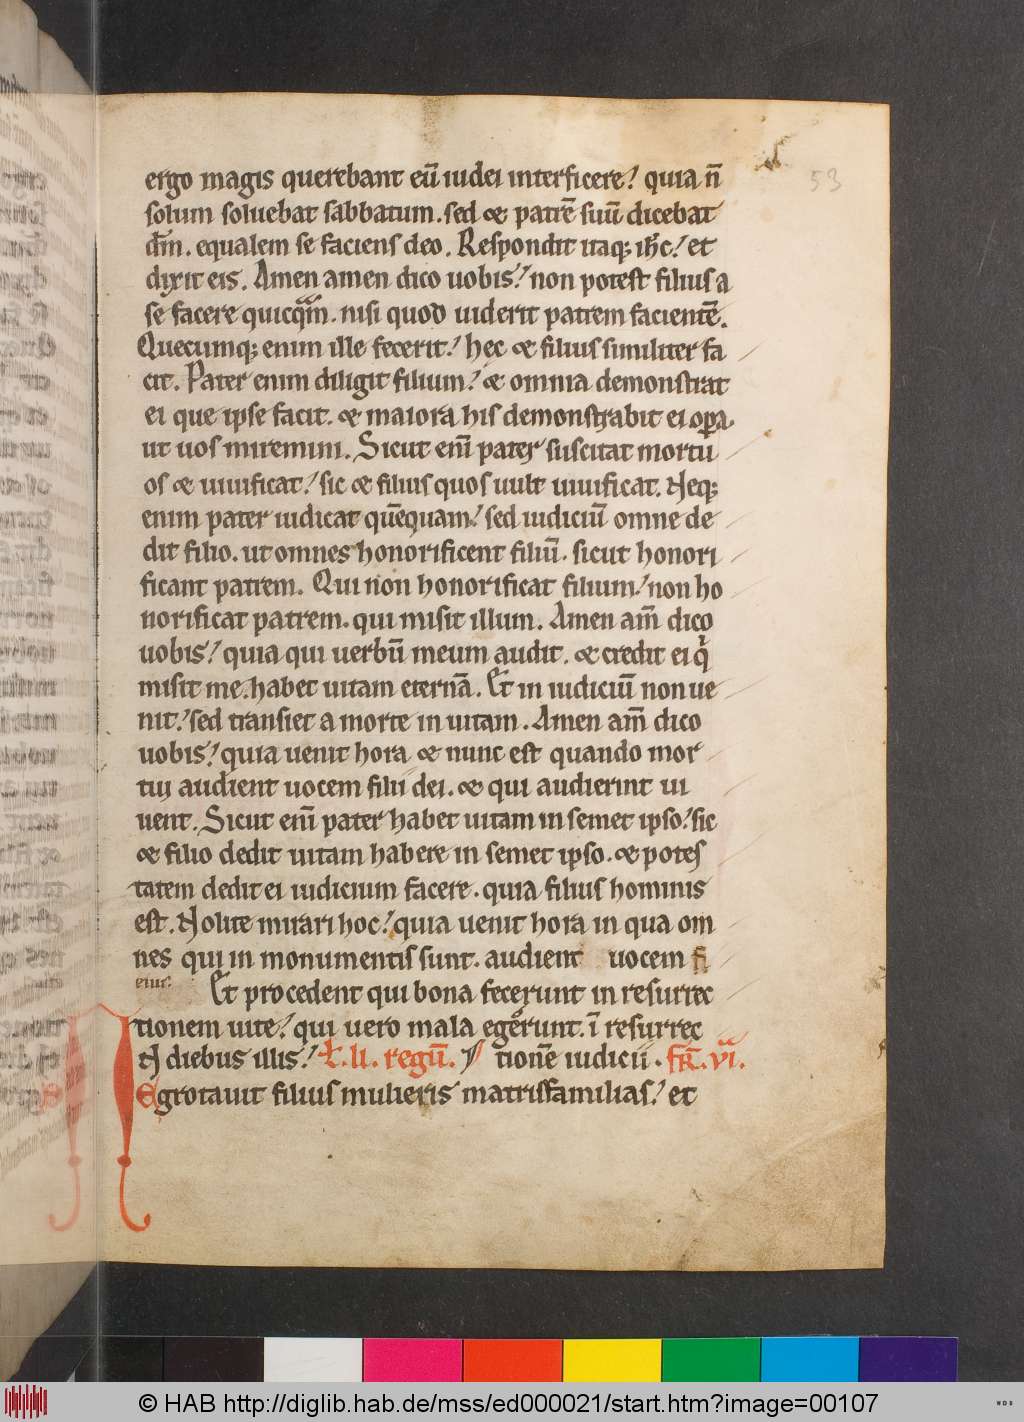 53
ergo magis querebant eū iudei interficere! quia n̄
solum soluebat sabbatum. sed & patrē suū dicebat
dm̄. equalem se faciens deo. Respondit itaq; ih̄c! et
dixit eis. Amen amen dico uobis! non potest filius a
se facere quicq̄m. nisi quod uiderit patrem facientē.
Quecumq; enim ille fecerit! hec & filius similiter fa
cit. Pater enim diligit filium! & omnia demonstrat
ei que ipse facit. & maiora his demonstrabit ei op̄a.
ut uos miremini. Sicut eni̅ pater suscitat mortu
os & uiuificat! sic & filius quos uult uiuificat. Neq;
enim pater iudicat quēquam! sed iudiciū omne de
dit filio. ut omnes honorificent filiū. sicut honori
ficant patrem. Qui non honorificat filium! non ho
norificat patrem. qui misit illum. Amen am̄ dico
uobis! quia qui uerbū meum audit. & credit ei q̇
misit me. habet uitam eternā. Et in iudiciū non ue
nit! sed transiet a morte in uitam. Amen am̄ dico
uobis! quia uenit hora & nunc est quando mor
tui audient uocem filii dei. & qui audierint ui
uent. Sicut eni̅ pater habet uitam in semet ipso! sic
& filio dedit uitam habere in semet ipso. & potes
tatem dedit ei iudicium facere. quia filius hominis
est. Nolite mirari hoc! quia uenit hora in qua om
nes qui in monumentis sunt. audient uocem fi
eius. Et procedent qui bona fecerunt in resurrec
tionem uite! qui uero mala egerunt. ī resurrec
IN diebus illis! Ł. li. regū. tionē iudicii. fr̄. vi.
Egrotauit filius mulieris matrisfamilias! et
© HAB http://diglib.hab.de/mss/ed000021/start.htm?image=00107